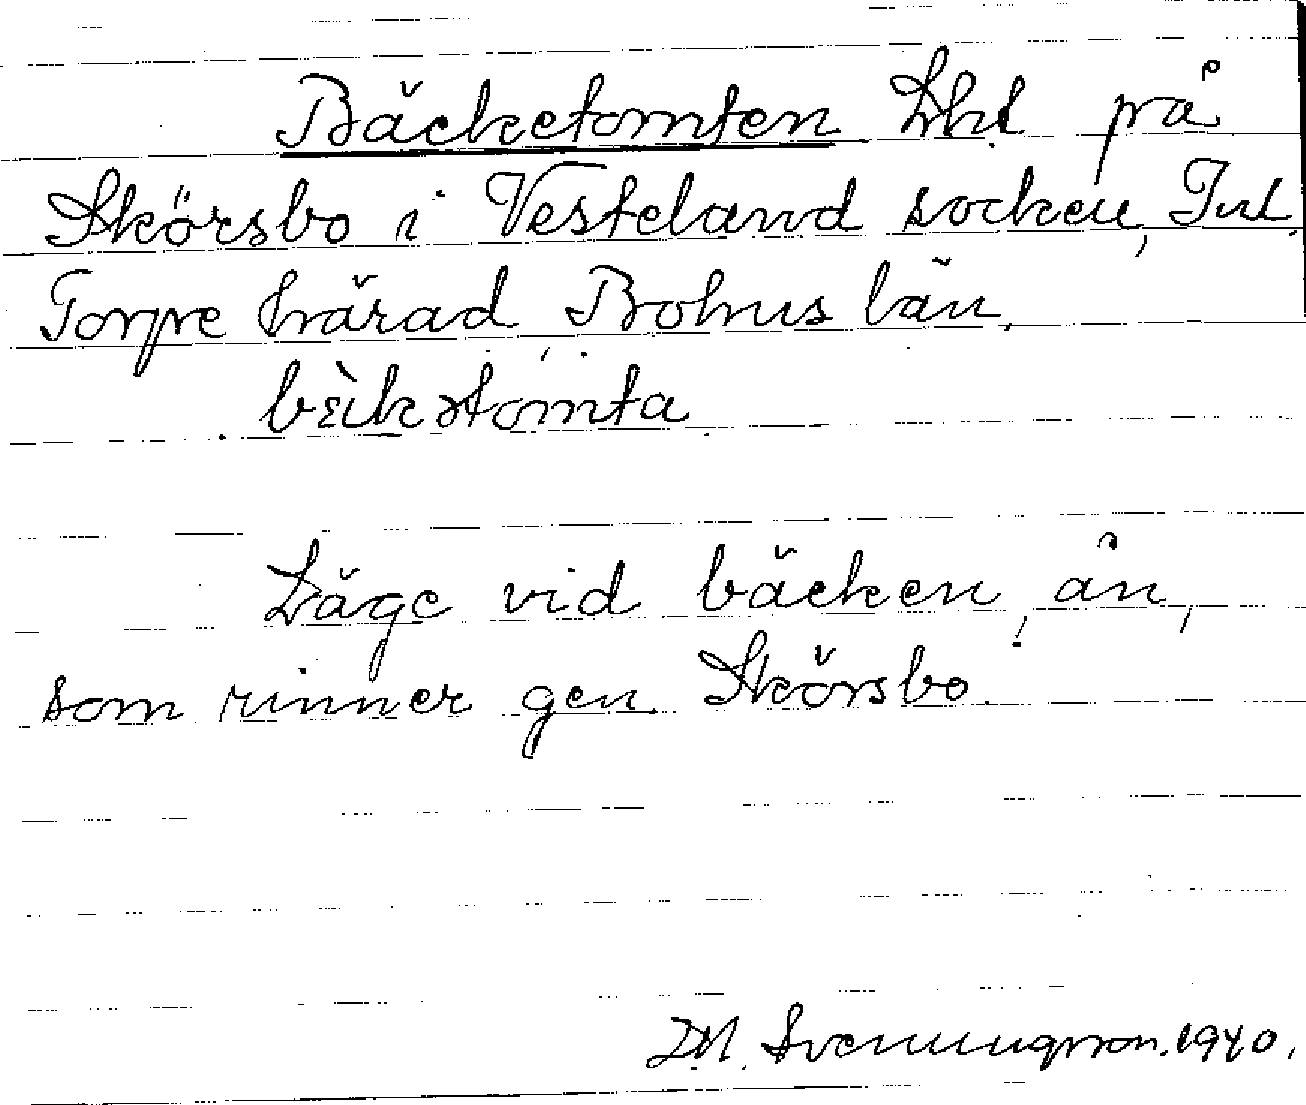 Bäcketomten Lht på
Skörsbo i Vesteland socken, Inl.
Torpe härad, Bohus län.
bèkətomta
Läge vid bäcken, ån,
som rinner gen. Skörsbo.
M. Svenungsson. 1940.